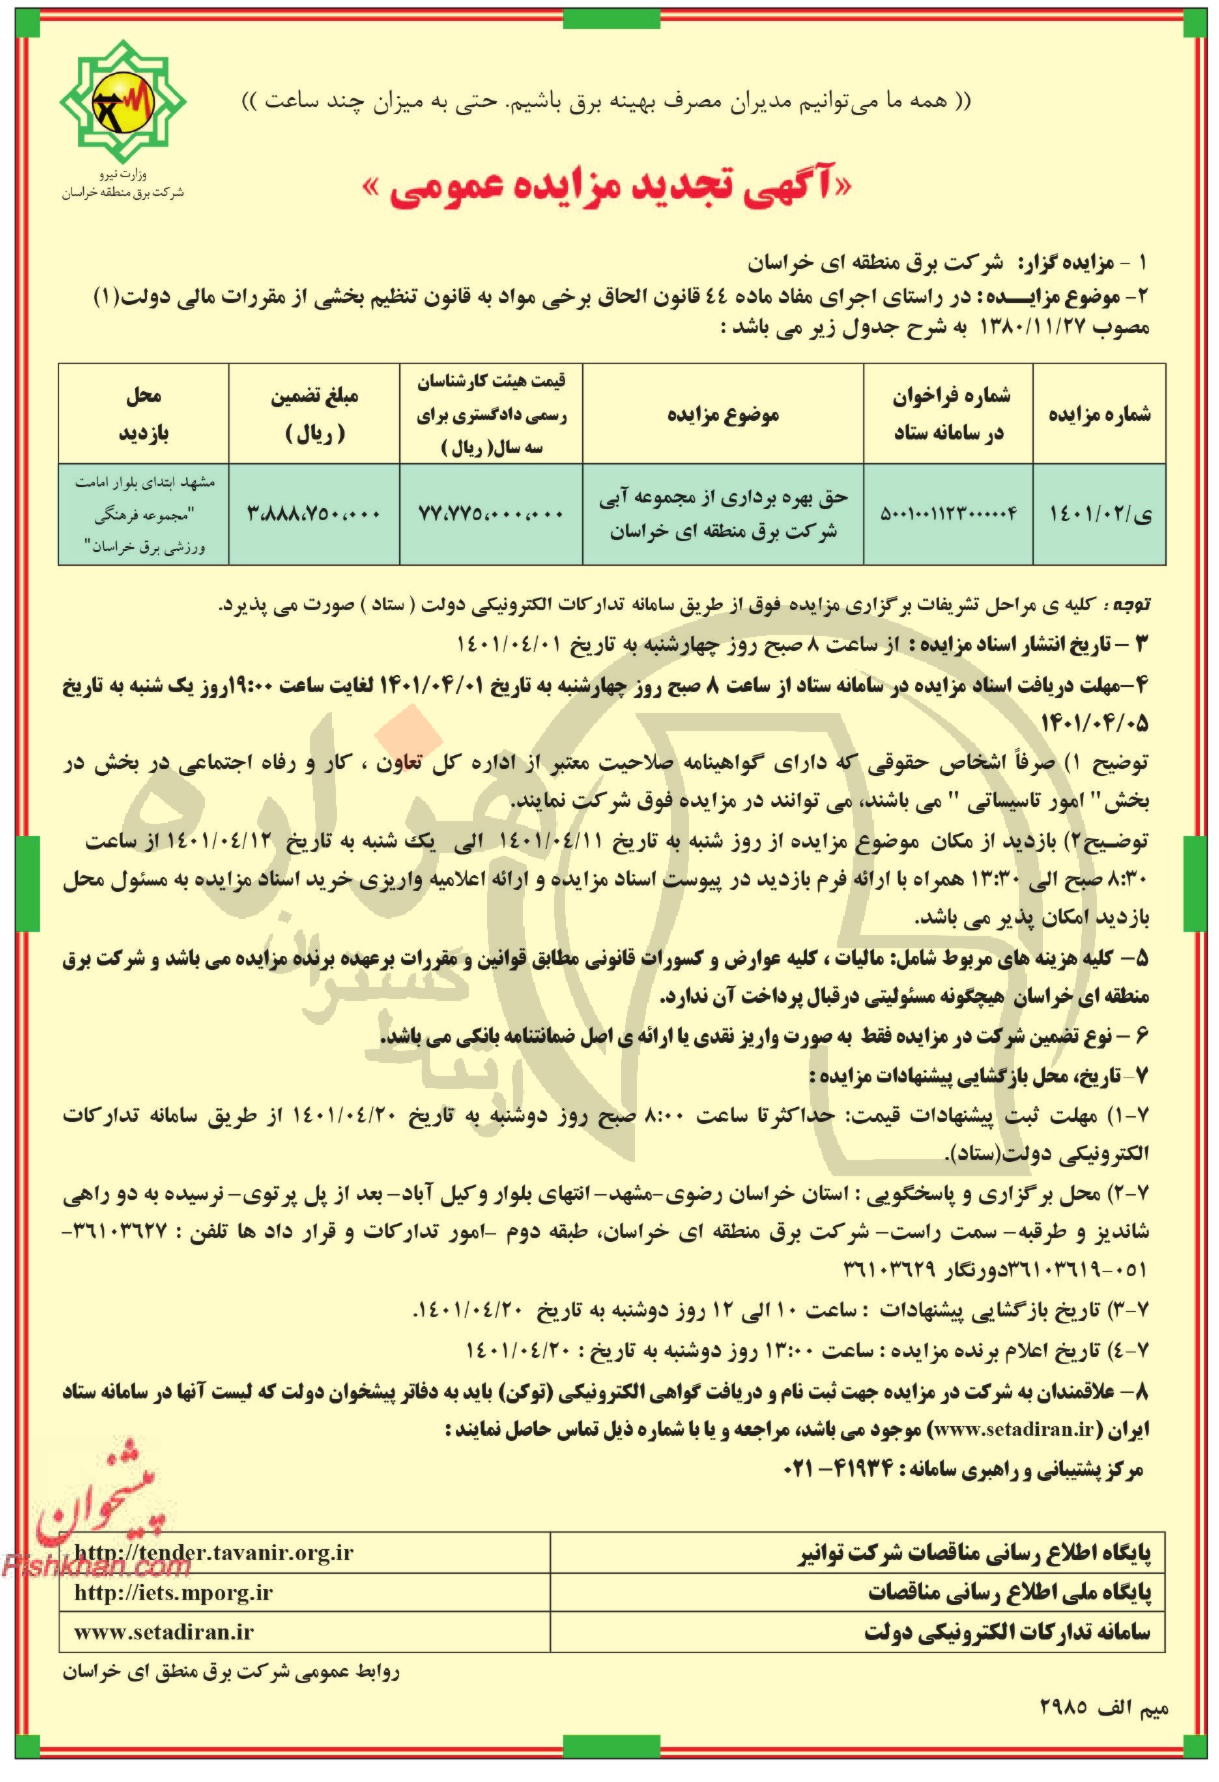 (( همه ما می‌توانیم مدیران مصرف بهینه برق باشیم. حتی به میزان چند ساعت ))
وزارت نیرو
شرکت برق منطقه خراسان
«آگهی تجدید مزایده عمومی »
۱ - مزایده گزار: شرکت برق منطقه ای خراسان
۲- موضوع مزایـــده: در راستای اجرای مفاد ماده ٤٤ قانون الحاق برخی مواد به قانون تنظیم بخشی از مقررات مالی دولت(۱)
مصوب ۱۳۸۰/۱۱/۲۷ به شرح جدول زیر می باشد :
شماره مزایده
شماره فراخوان
در سامانه ستاد
موضوع مزایده
قیمت هیئت کارشناسان
رسمی دادگستری برای
سه سال( ریال )
مبلغ تضمین
( ریال )
محل
بازدید
ی/۱٤۰۱/۰۲
۵۰۰۱۰۰۱۱۲۳۰۰۰۰۰۴
حق بهره برداری از مجموعه آبی
شرکت برق منطقه ای خراسان
۷۷،۷۷۵،۰۰۰،۰۰۰
۳،۸۸۸،۷۵۰،۰۰۰
مشهد ابتدای بلوار امامت
"مجموعه فرهنگی
ورزشی برق خراسان"
توجه : کلیه ی مراحل تشریفات برگزاری مزایده فوق از طریق سامانه تدارکات الکترونیکی دولت ( ستاد ) صورت می پذیرد.
۳ – تاریخ انتشار اسناد مزایده : از ساعت ۸ صبح روز چهارشنبه به تاریخ ۱٤۰۱/۰٤/۰۱
۴-مهلت دریافت اسناد مزایده در سامانه ستاد از ساعت ۸ صبح روز چهارشنبه به تاریخ ۱۴۰۱/۰۴/۰۱ لغایت ساعت ۱۹:۰۰روز یک شنبه به تاریخ
۱۴۰۱/۰۴/۰۵
توضیح ۱) صرفاً اشخاص حقوقی که دارای گواهینامه صلاحیت معتبر از اداره کل تعاون ، کار و رفاه اجتماعی در بخش در
بخش" امور تاسیساتی " می باشند، می توانند در مزایده فوق شرکت نمایند.
توضـیح۲) بازدید از مکان موضوع مزایده از روز شنبه به تاریخ ۱٤۰۱/۰٤/۱۱ الی یک شنبه به تاریخ ۱٤۰۱/۰٤/۱۲ از ساعت
۸:۳۰ صبح الی ۱۳:۳۰ همراه با ارائه فرم بازدید در پیوست اسناد مزایده و ارائه اعلامیه واریزی خرید اسناد مزایده به مسئول محل
بازدید امکان پذیر می باشد.
۵- کلیه هزینه های مربوط شامل: مالیات ، کلیه عوارض و کسورات قانونی مطابق قوانین و مقررات برعهده برنده مزایده می باشد و شرکت برق
منطقه ای خراسان هیچگونه مسئولیتی درقبال پرداخت آن ندارد.
۶ – نوع تضمین شرکت در مزایده فقط به صورت واریز نقدی یا ارائه ی اصل ضمانتنامه بانکی می باشد.
۷- تاریخ، محل بازگشایی پیشنهادات مزایده :
۷-۱) مهلت ثبت پیشنهادات قیمت: حداکثر تا ساعت ۸:۰۰ صبح روز دوشنبه به تاریخ ۱٤۰۱/۰٤/۲۰ از طریق سامانه تدارکات
الکترونیکی دولت(ستاد).
۷-۲) محل برگزاری و پاسخگویی : استان خراسان رضوی-مشهد- انتهای بلوار وکیل آباد- بعد از پل پرتوی- نرسیده به دو راهی
شاندیز و طرقبه- سمت راست- شرکت برق منطقه ای خراسان، طبقه دوم -امور تدارکات و قرار داد ها تلفن : ۳۶۱۰۳۶۲۷-
۰۵۱-۳۶۱۰۳۶۱۹دورنگار ۳۶۱۰۳۶۲۹
۷-۳) تاریخ بازگشایی پیشنهادات : ساعت ۱۰ الی ۱۲ روز دوشنبه به تاریخ ۱٤۰۱/۰٤/۲۰.
۷-٤) تاریخ اعلام برنده مزایده : ساعت ۱۳:۰۰ روز دوشنبه به تاریخ : ۱٤۰۱/۰٤/۲۰
۸- علاقمندان به شرکت در مزایده جهت ثبت نام و دریافت گواهی الکترونیکی (توکن) باید به دفاتر پیشخوان دولت که لیست آنها در سامانه ستاد
ایران (www.setadiran.ir) موجود می باشد، مراجعه و یا با شماره ذیل تماس حاصل نمایند :
مرکز پشتیبانی و راهبری سامانه : ۴۱۹۳۴- ۰۲۱
پایگاه اطلاع رسانی مناقصات شرکت توانیر
http://tender.tavanir.org.ir
پایگاه ملی اطلاع رسانی مناقصات
http://iets.mporg.ir
سامانه تدارکات الکترونیکی دولت
www.setadiran.ir
روابط عمومی شرکت برق منطق ای خراسان
میم الف ۲۹۸۵
هزاره
پیشخوان
Pishkhan.com